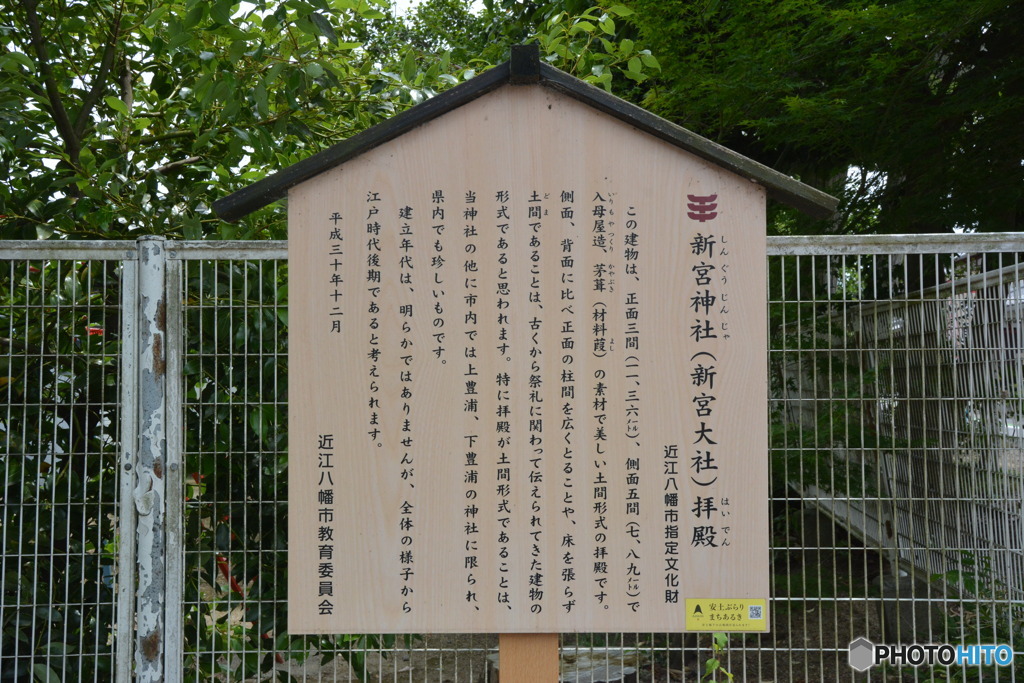 新宮神社（新宮大社）拝殿
しんぐうじんじゃ
はいでん
近江八幡市指定文化財
この建物は、正面三間（一一、三六メートル）、側面五間（七、八九メートル）で
入母屋造、茅葺（材料葭）の素材で美しい土間形式の拝殿です。
いりもやつくり
かやぶき
よし
側面、背面に比べ正面の柱間を広くとることや、床を張らず
土間であることは、古くから祭礼に関わって伝えられてきた建物の
どま
形式であると思われます。特に拝殿が土間形式であることは、
当神社の他に市内では上豊浦、下豊浦の神社に限られ、
県内でも珍しいものです。
建立年代は、明らかではありませんが、全体の様子から
江戸時代後期であると考えられます。
平成三十年十二月
近江八幡市教育委員会
安土ぶらり
まちあるき
PHOTOHITO